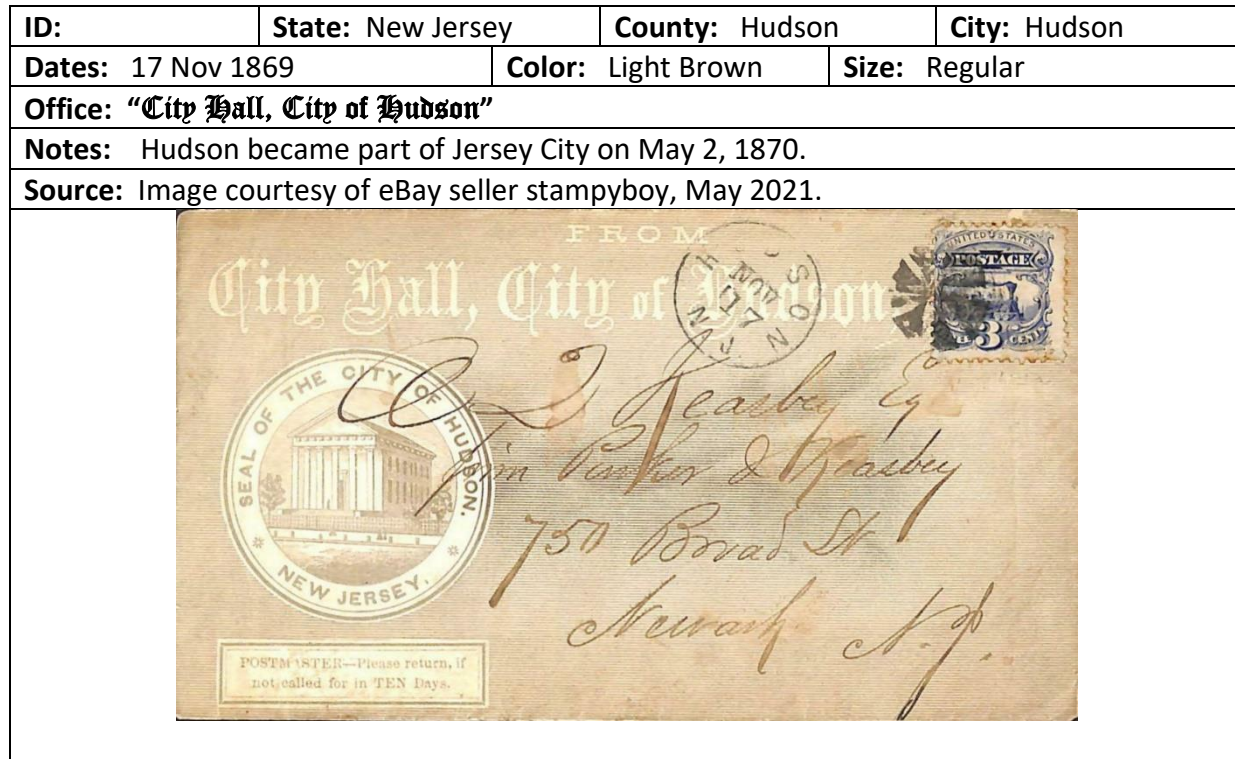 ID: State: New Jersey County: Hudson City: Hudson
Dates: 17 Nov 1869 Color: Light Brown Size: Regular
Office: “City Hall, City of Hudson”
Notes: Hudson became part of Jersey City on May 2, 1870.
Source: Image courtesy of eBay seller stampyboy, May 2021.
FROM
City Hall, City of Hudson
NOV
17
UNITED STATES
POSTAGE
3
CENTS
SEAL OF THE CITY OF HUDSON.
NEW JERSEY.
Keasbey Esq
& Keasbey
750 Broad St
Newark N.J.
POSTMASTER—Please return, if
not called for in TEN Days.